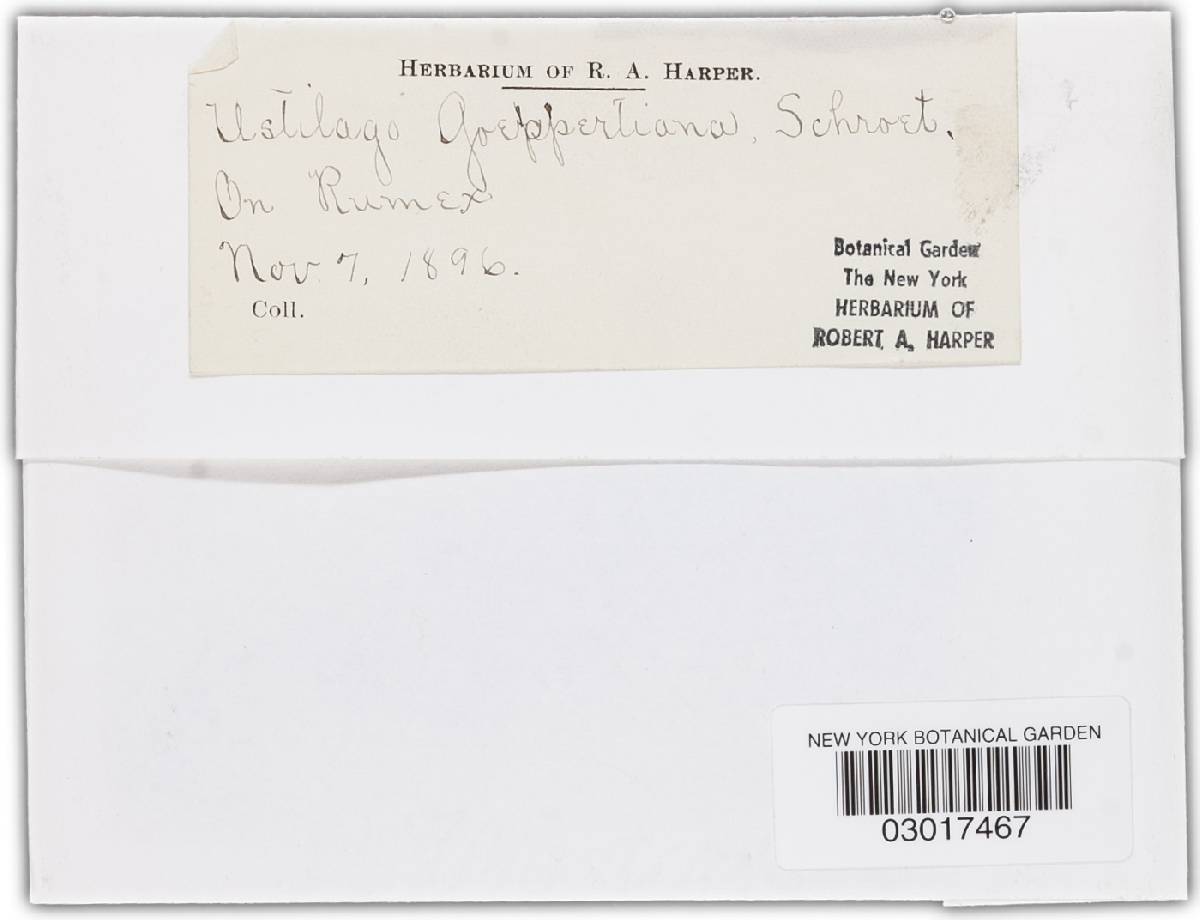 HERBARIUM OF R. A. HARPER.
Ustilago Goeppertiana, Schroet.
On Rumex
Nov 7, 1896.
Coll.
Botanical Garden
The New York
HERBARIUM OF
ROBERT A. HARPER
NEW YORK BOTANICAL GARDEN
03017467